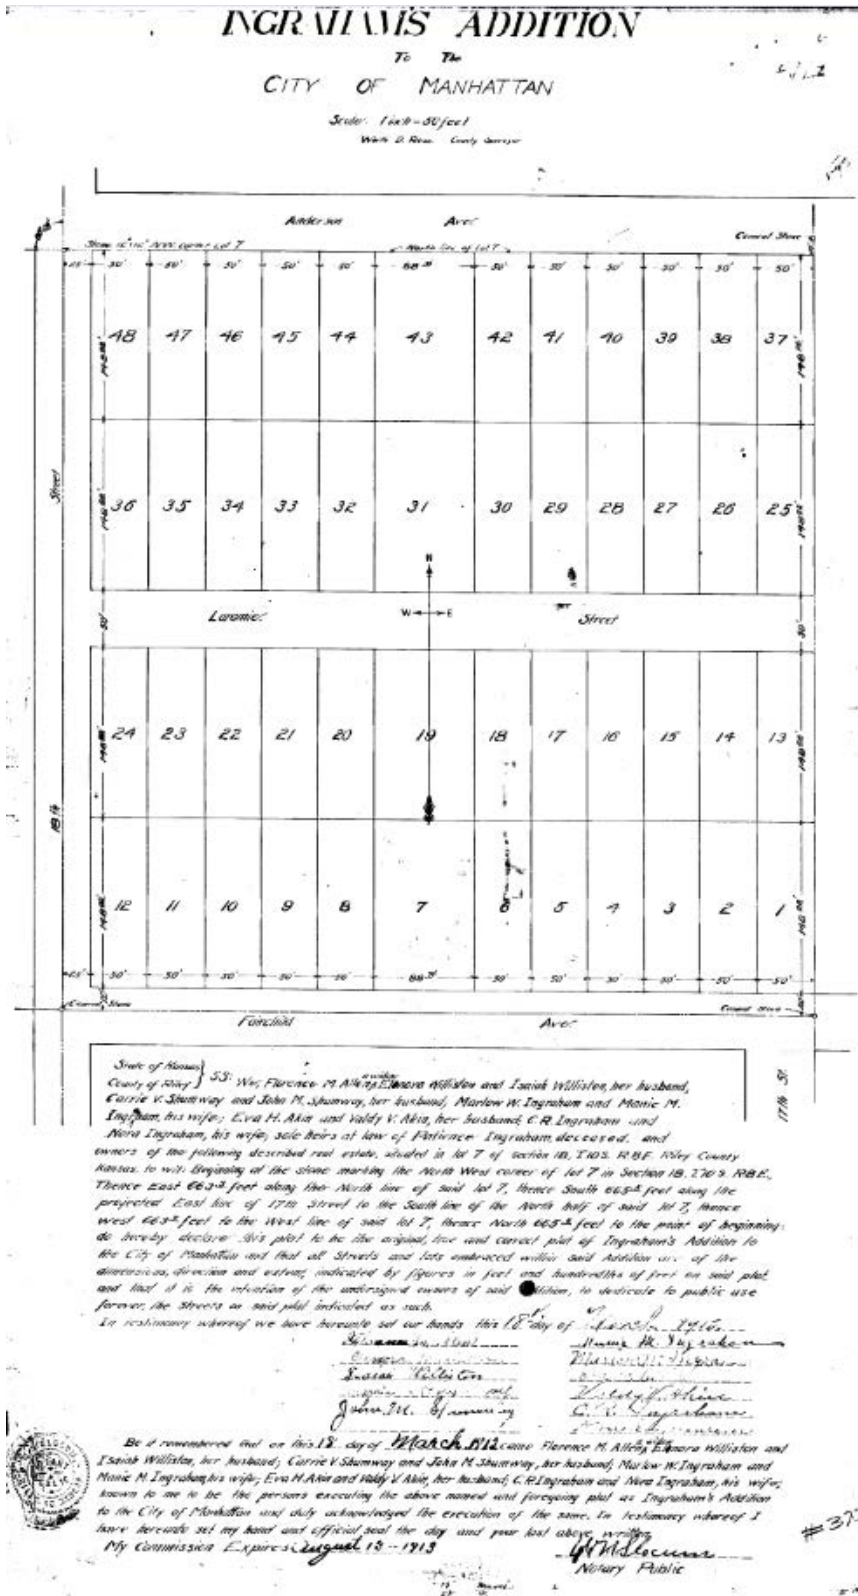 INGRAHAM'S ADDITION
To The
CITY OF MANHATTAN
Scale: 1 inch = 50 feet
County Surveyor
Anderson Ave.
Stone N.W. corner Lot 7
North line of Lot 7
Cement Stone
25' 50' 50' 50' 50' 50' 50' 50' 50' 50' 50' 50'
48 47 46 45 44 43 42 41 40 39 38 37
36 35 34 33 32 31 30 29 28 27 26 25
Street
N
W E
Laramie Street
50' 50'
24 23 22 21 20 19 18 17 16 15 14 13
18th
12 11 10 9 8 7 6 5 4 3 2 1
25' 50' 50' 50' 50' 50' 50' 50' 50' 50' 50' 50'
Cement Stone Cement Stone
Fairchild Ave.
17th St.
State of Kansas
County of Riley } SS: We, Florence M. Allen, a widow, Elenora Williston and Isaiah Williston, her husband,
Carrie V. Shumway and John M. Shumway, her husband, Marlow W. Ingraham and Manie M.
Ingraham, his wife; Eva H. Akin and Valdy V. Akin, her husband, C. R. Ingraham and
Nora Ingraham, his wife, sole heirs at law of Patience Ingraham, deceased, and
owners of the following described real estate, situated in lot 7 of section 18, T.10 S. R.8 E. Riley County
Kansas, to wit: Beginning at the stone marking the North West corner of lot 7 in Section 18, T.10 S. R.8 E.,
Thence East feet along the North line of said lot 7, thence South feet along the
projected East line of 17th Street to the South line of the North half of said lot 7, thence
West feet to the West line of said lot 7, thence North feet to the point of beginning;
do hereby declare this plat to be the original, true and correct plat of Ingraham's Addition to
the City of Manhattan and that all Streets and lots embraced within said Addition are of the
dimensions, direction and extent, indicated by figures in feet and hundredths of feet on said plat,
and that it is the intention of the undersigned owners of said Addition, to dedicate to public use
forever, the Streets on said plat indicated as such.
In testimony whereof we have hereunto set our hands this 18th day of March
Manie M. Ingraham
Isaiah Williston
Valdy V. Akin
John M. Shumway C. R. Ingraham
Be it remembered that on this 18 day of March 1912 came Florence M. Allen, Elenora Williston and
Isaiah Williston, her husband; Carrie V. Shumway and John M. Shumway, her husband; Marlow W. Ingraham and
Manie M. Ingraham, his wife; Eva H. Akin and Valdy V. Akin, her husband; C. R. Ingraham and Nora Ingraham, his wife;
known to me to be the persons executing the above named and foregoing plat as Ingraham's Addition
to the City of Manhattan and duly acknowledged the execution of the same. In testimony whereof I
have hereunto set my hand and official seal the day and year last above written.
My Commission Expires August 13-1913
Notary Public